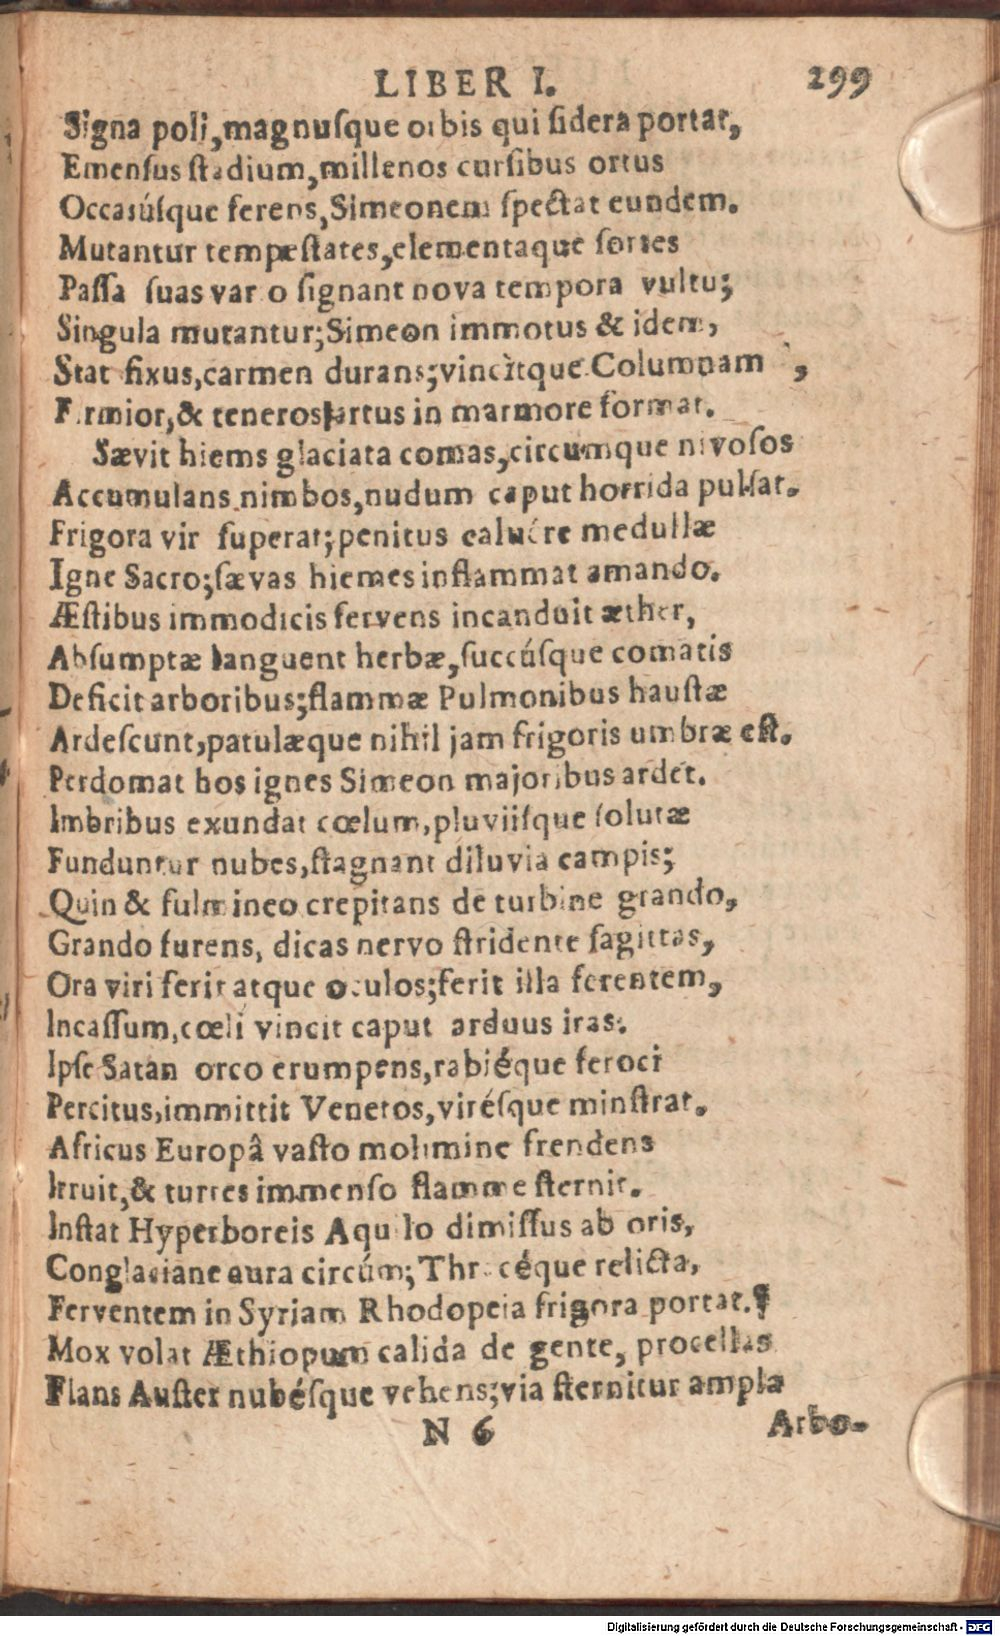 LIBER I. 299
Signa poli, magnuſque orbis qui ſidera portat,
Emenſus ſtadium, millenos curſibus ortus
Occasúſque ferens, Simeonem ſpectat eundem.
Mutantur tempeſtates, elementaque ſortes
Paſſa ſuas vario ſignant nova tempora vultu;
Singula mutantur; Simeon immotus & idem,
Stat fixus, carmen durans; vincitque Columnam,
Firmior, & teneros artus in marmore format.
Sævit hiems glaciata comas, circumque nivoſos
Accumulans nimbos, nudum caput horrida pulſat.
Frigora vir ſuperat; penitus caluére medullæ
Igne Sacro; ſævas hiemes inflammat amando.
Æſtibus immodicis fervens incanduit æther,
Abſumptæ languent herbæ, ſuccúſque comatis
Deficit arboribus; flammæ Pulmonibus hauſtæ
Ardeſcunt, patulæque nihil jam frigoris umbræ eſt.
Perdomat hos ignes Simeon majoribus ardet.
Imbribus exundat cœlum, pluviiſque ſolutæ
Funduntur nubes, ſtagnant diluvia campis;
Quin & fulmineo crepitans de turbine grando,
Grando furens, dicas nervo ſtridente ſagittas,
Ora viri ferit atque oculos; ferit illa ferentem,
Incaſſum, cœli vincit caput arduus iras.
Ipſe Satan orco erumpens, rabiéque feroci
Percitus, immittit Venetos, viréſque minſtrat.
Africus Europâ vaſto molimine frendens
Irruit, & turres immenſo flamme ſternit.
Inſtat Hyperboreis Aquilo dimiſſus ab oris,
Conglaciane aura circúm; Thracéque relicta,
Ferventem in Syriam Rhodopeia frigora portat.
Mox volat Æthiopum calida de gente, procellas
Flans Auſter nubéſque vehens; via ſternitur ampla
N 6 Arbo-
Digitalisierung gefördert durch die Deutsche Forschungsgemeinschaft - DFG